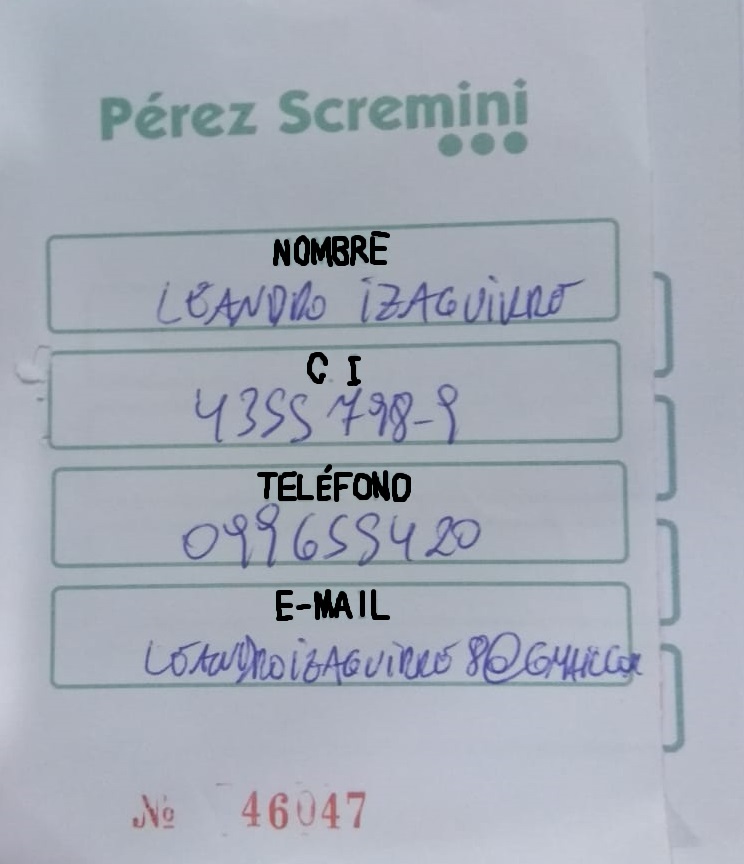 Pérez Scremini
NOMBRE
LEANDRO IZAGUIRRE
C I
4355798-9
TELÉFONO
099655420
E-MAIL
LEANDROIZAGUIRRE8@GMAIL.COM
Nº 46047